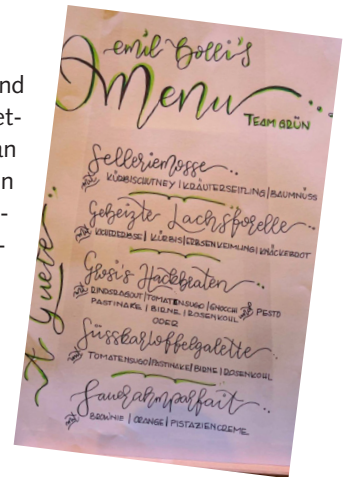 nd
et-
an
n
-
-
emil Bolli's
Menu
TEAM GRÜN
Selleriemosse
KÜRBISCHUTNEY | KRÄUTERSEITLING | BAUMNUSS
Gebeizte Lachsforelle
KICHERERBSE | KÜRBIS | ERBSENKEIMLING | KNÄCKEBROT
Glosi's Hackbraten
RINDSRAGOUT | TOMATENSUGO | GNOCCHI PESTO
PASTINAKE | BIRNE | ROSENKOHL
ODER
Süsskartoffelgalette
TOMATENSUGO | PASTINAKE | BIRNE | ROSENKOHL
Sauerrahmparfait
BROWNIE | ORANGE | PISTAZIENCREME
Ä Guete